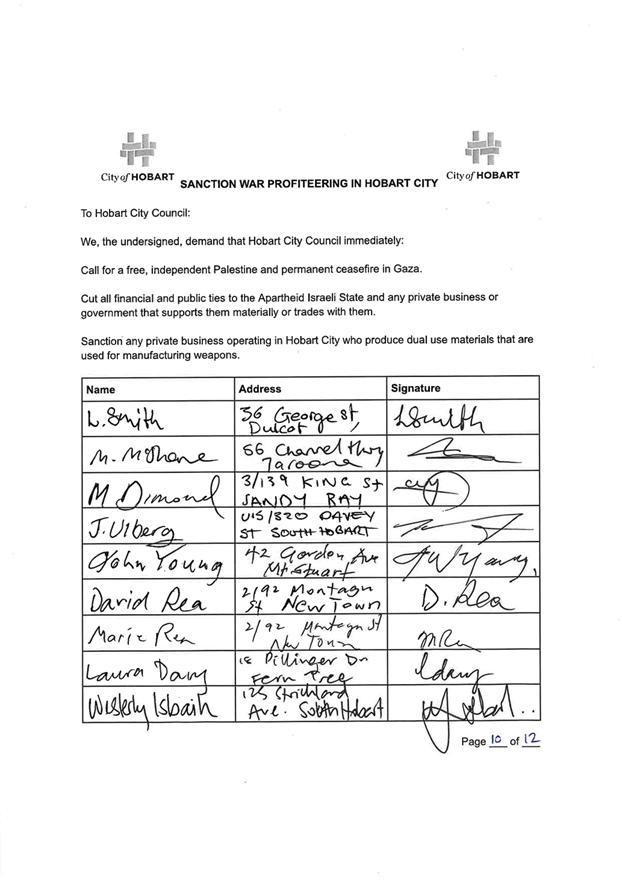 City of HOBART
City of HOBART
SANCTION WAR PROFITEERING IN HOBART CITY
To Hobart City Council:
We, the undersigned, demand that Hobart City Council immediately:
Call for a free, independent Palestine and permanent ceasefire in Gaza.
Cut all financial and public ties to the Apartheid Israeli State and any private business or
government that supports them materially or trades with them.
Sanction any private business operating in Hobart City who produce dual use materials that are
used for manufacturing weapons.
Name Address Signature
L. Smith 36 George St, LSmith
Dulcot
M. McShane 56 Channel Hwy
Taroona
M Dimond 3/139 KING St
SANDY BAY
J. Ulberg U15/320 DAVEY
ST SOUTH HOBART
John Young 42 Gordon Ave JW Young,
Mt. Stuart
David Rea 2/92 Montagu D. Rea
St New Town
Marie Rea 2/92 Montagu St MRea
New Town
Laura Davy 18 Pillinger Dr ldavy
Fern Tree
125 Strickland
Ave. South Hobart
Page 10 of 12